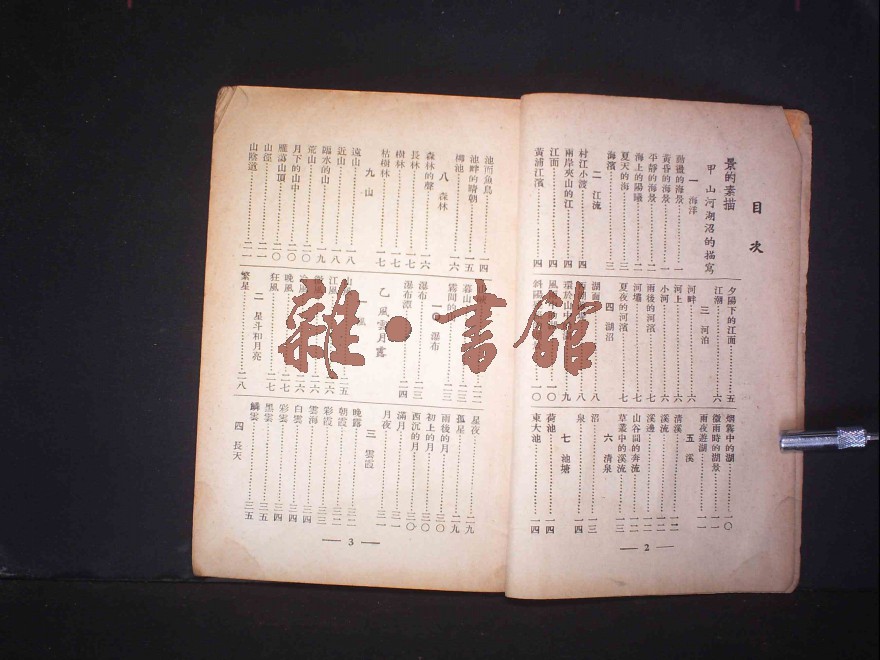 目次
景的素描
甲 山河湖沼的描寫
一 海洋
動盪的海景……一
黃昏的海景……一
平靜的海景……二
海上的陽曦……二
夏天的海……三
海濱……三
二 江流
村江小渡……四
兩岸夾山的江……四
江面……四
黃浦江濱……四
夕陽下的江面……五
江潮……六
三 河泊
河畔……六
河上……六
小河……六
雨後的河濱……七
河壩……七
夏夜的河濱……七
四 湖沼
湖面……八
環於山中……九
一〇
斜陽……一〇
烟靄中的湖……一〇
微雨時的湖景……一一
雨夜遊湖……一一
五 溪
清溪……一二
溪流……一二
溪邊……一二
山谷間的奔流……一二
草叢中的溪流……一三
六 清泉
沼……一三
泉……一四
七 池塘
荷池……一四
東大池……一四
2
池面魚鳥……一四
池畔的晴朝……一五
柳池……一六
八 森林
森林的聲……一六
長林……一七
樹林……一七
枯樹林……一七
九 山
遠山……一八
近山……一八
臨水的山……一九
荒山……二〇
月下的山中……二〇
雁蕩山頂……二〇
山徑……二一
山陰道……二一
二二
暮山
霧間的……二三
瀑布
瀑布……二三
瀑布潭……二四
乙 風雲月露
二五
江風……二六
二六
晚風……二七
狂風……二七
二 星斗和月亮
繁星……二八
星夜……二九
孤星……二九
雨後的月……三〇
初上的月……三〇
西沉的月……三〇
滿月……三一
月夜……三一
三 雲霞
晚霧……三二
朝霞……三二
彩霞……三三
雲海……三三
白雲……三四
彩雲……三四
黑雲……三五
鱗雲……三五
四 長天
3
雜·書館